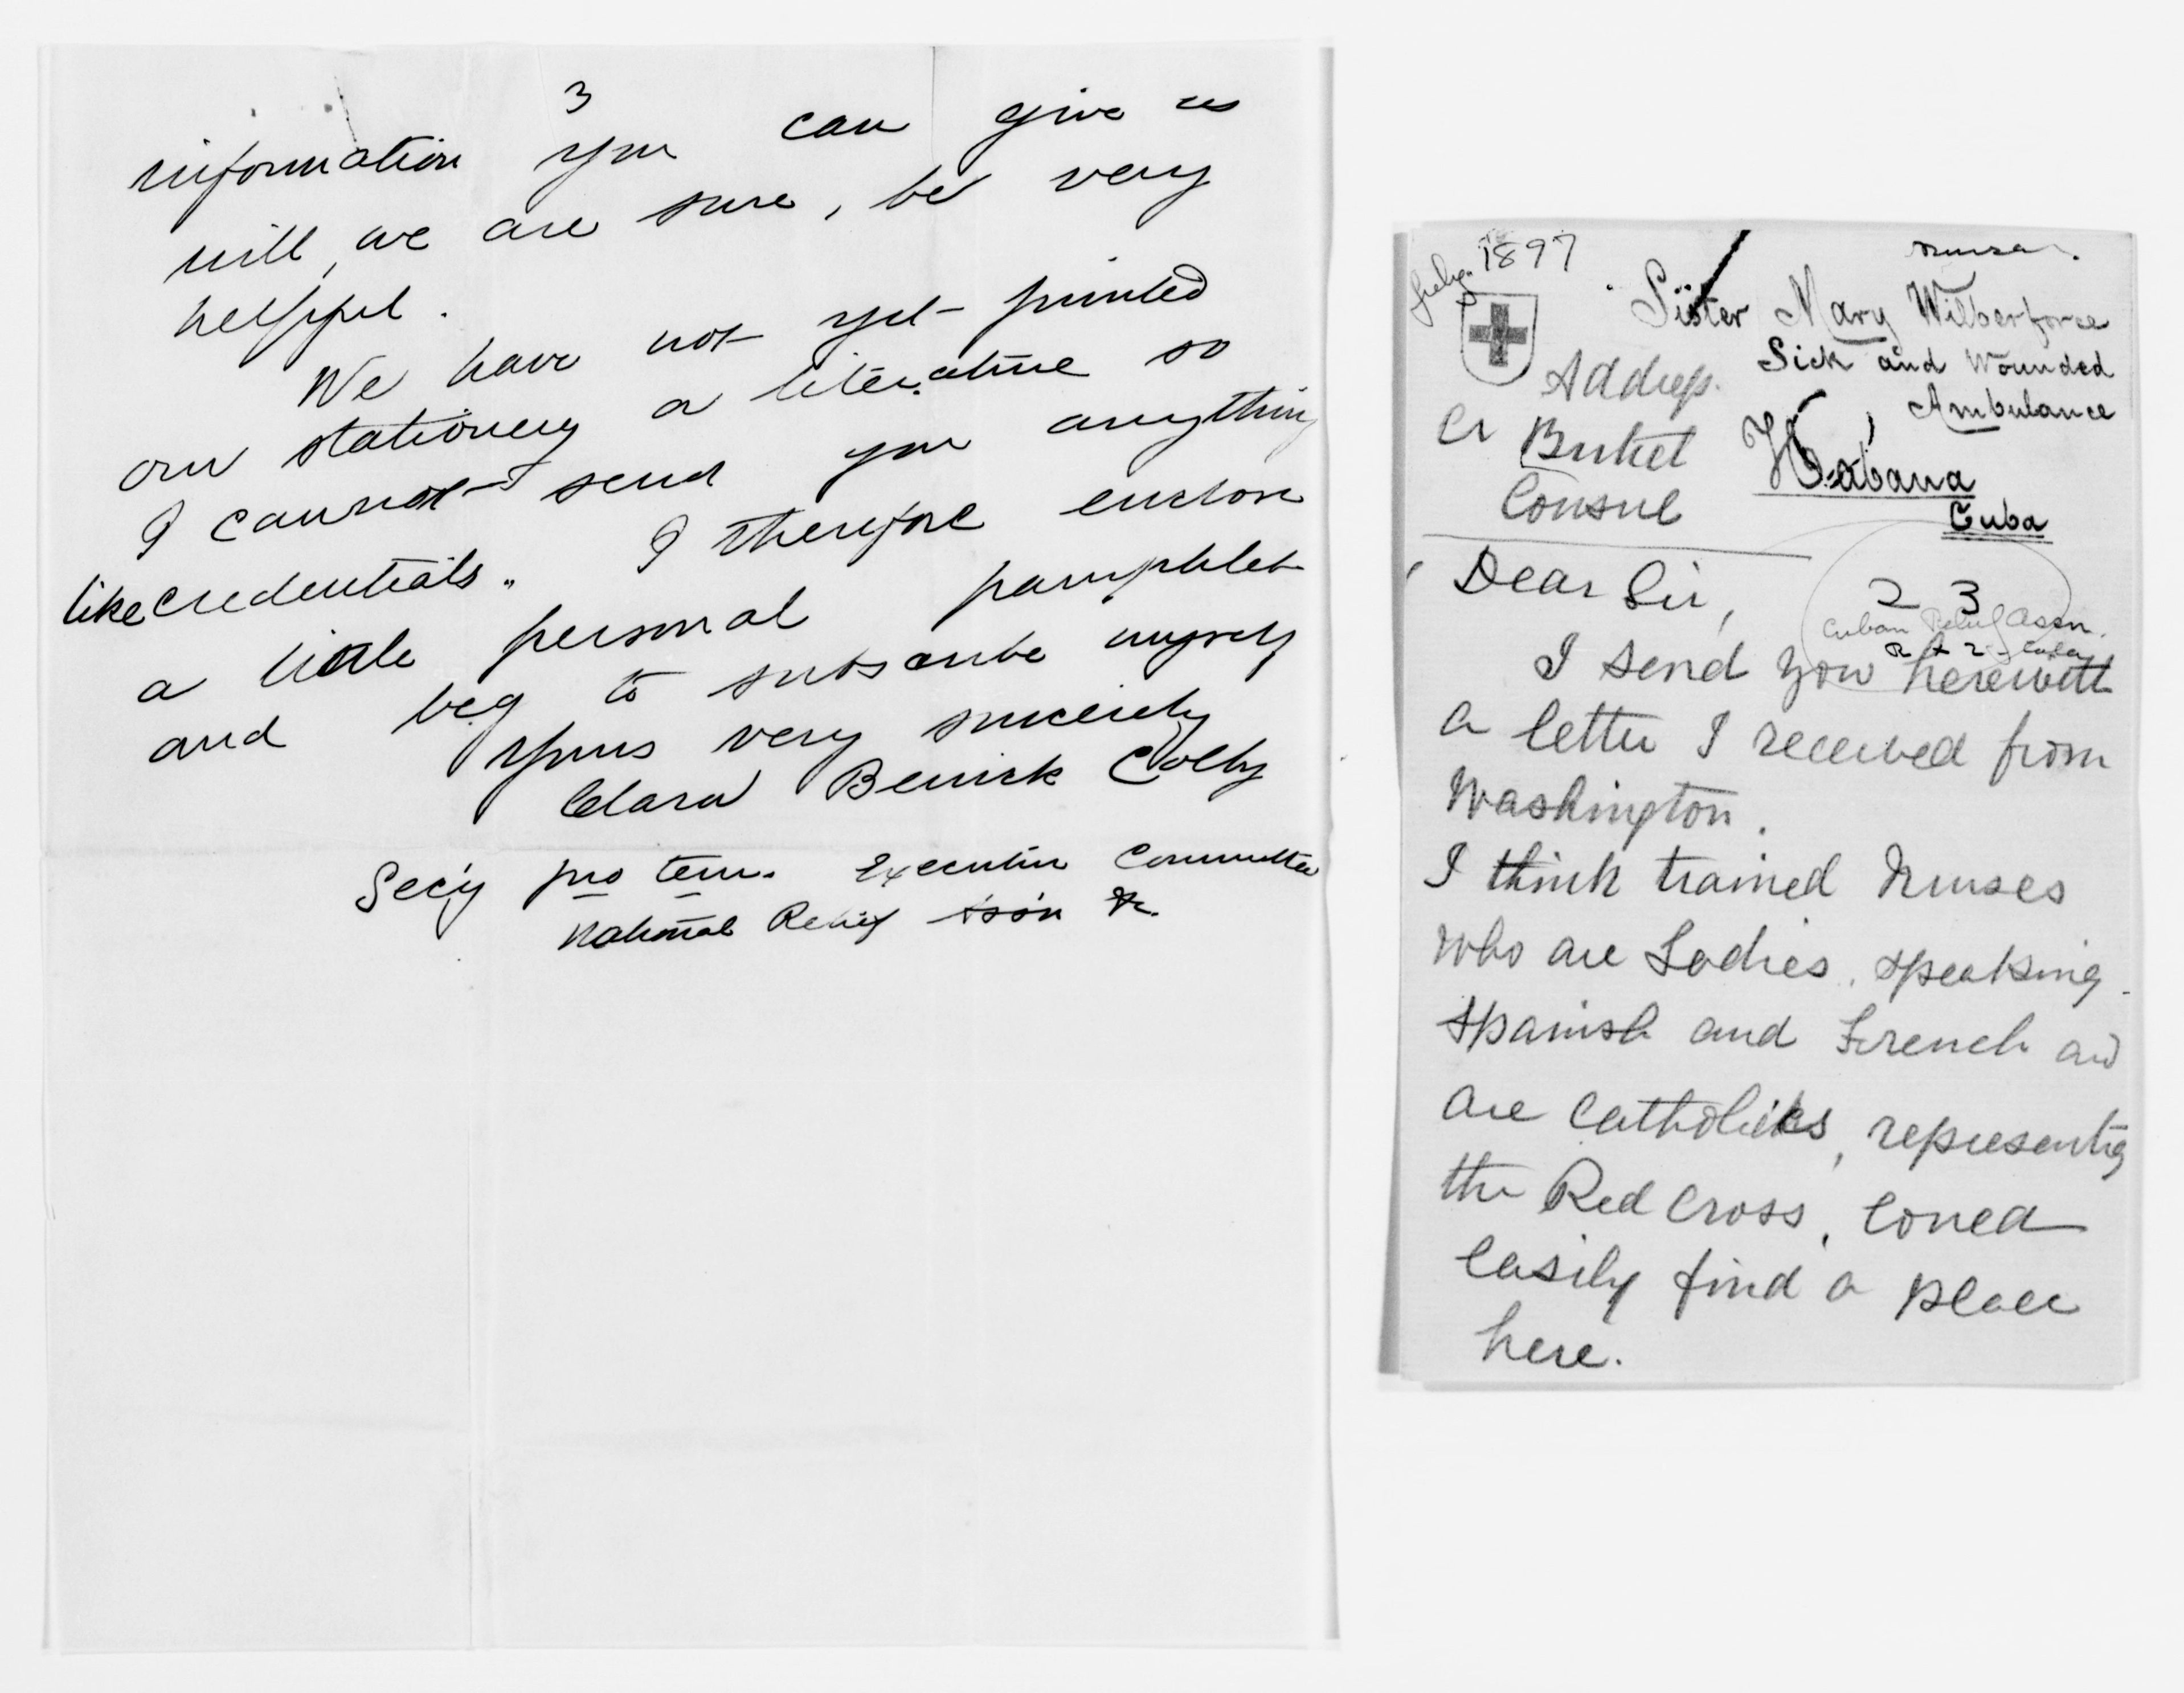 3
information you can give us
will, we are sure, be very
helpful.
We have not yet printed
our stationery or literature so
I cannot send you anything
like credentials. I therefore enclose
a little personal pamphlet
and beg to subscribe myself
Yours very sincerely
Clara Bewick Colby
Sec'y pro tem. Executive Committee
National Relief Ass'n &c.
July 1897
nurse.
Sister Mary Wilberforce
Sick and Wounded
Ambulance
Address
Habana
Cuba
Consul
Dear Sir,
2 3
Cuban Relief Assn.
I send you herewith
a letter I received from
Washington.
I think trained Nurses
who are Ladies, speaking
Spanish and French and
are Catholicks, representig
the Red Cross, could
easily find a place
here.